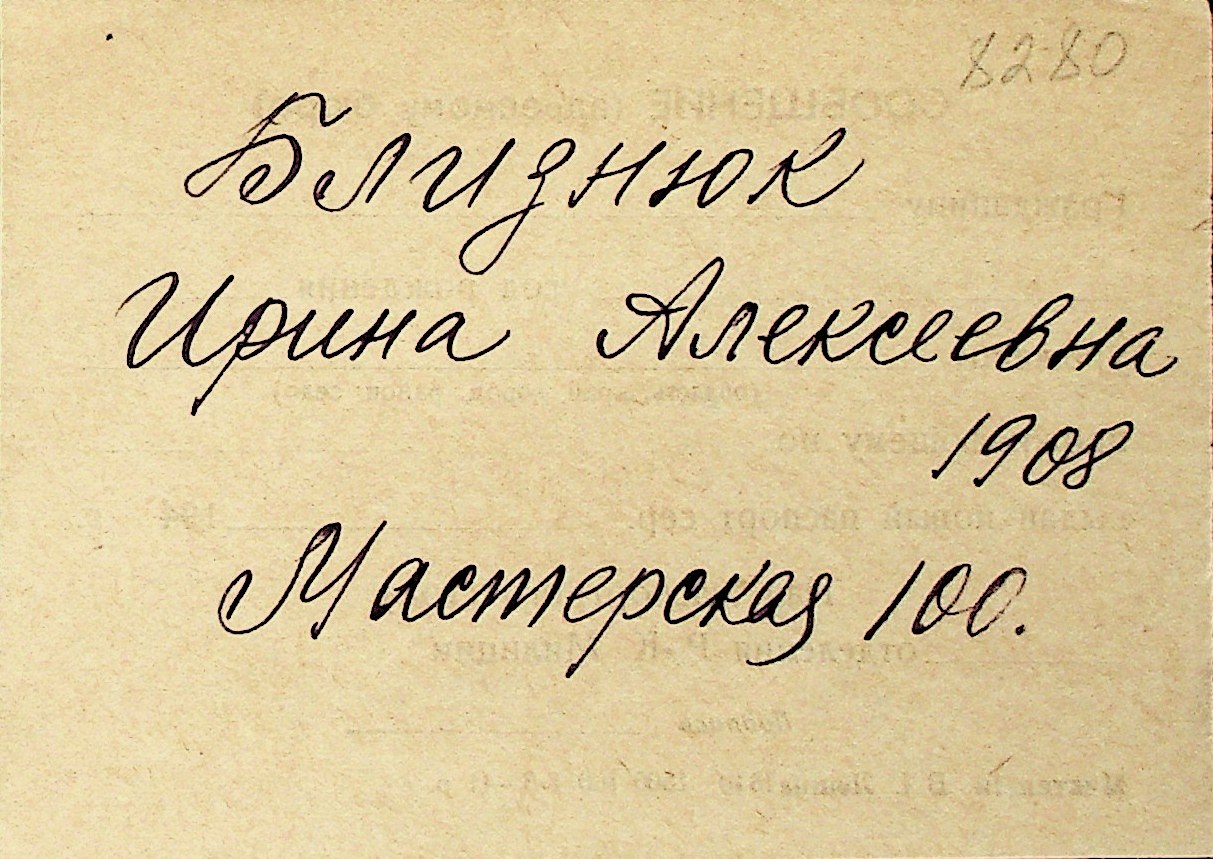 8280
Близнюк
Ирина Алексеевна
1908
Мастерская 100.